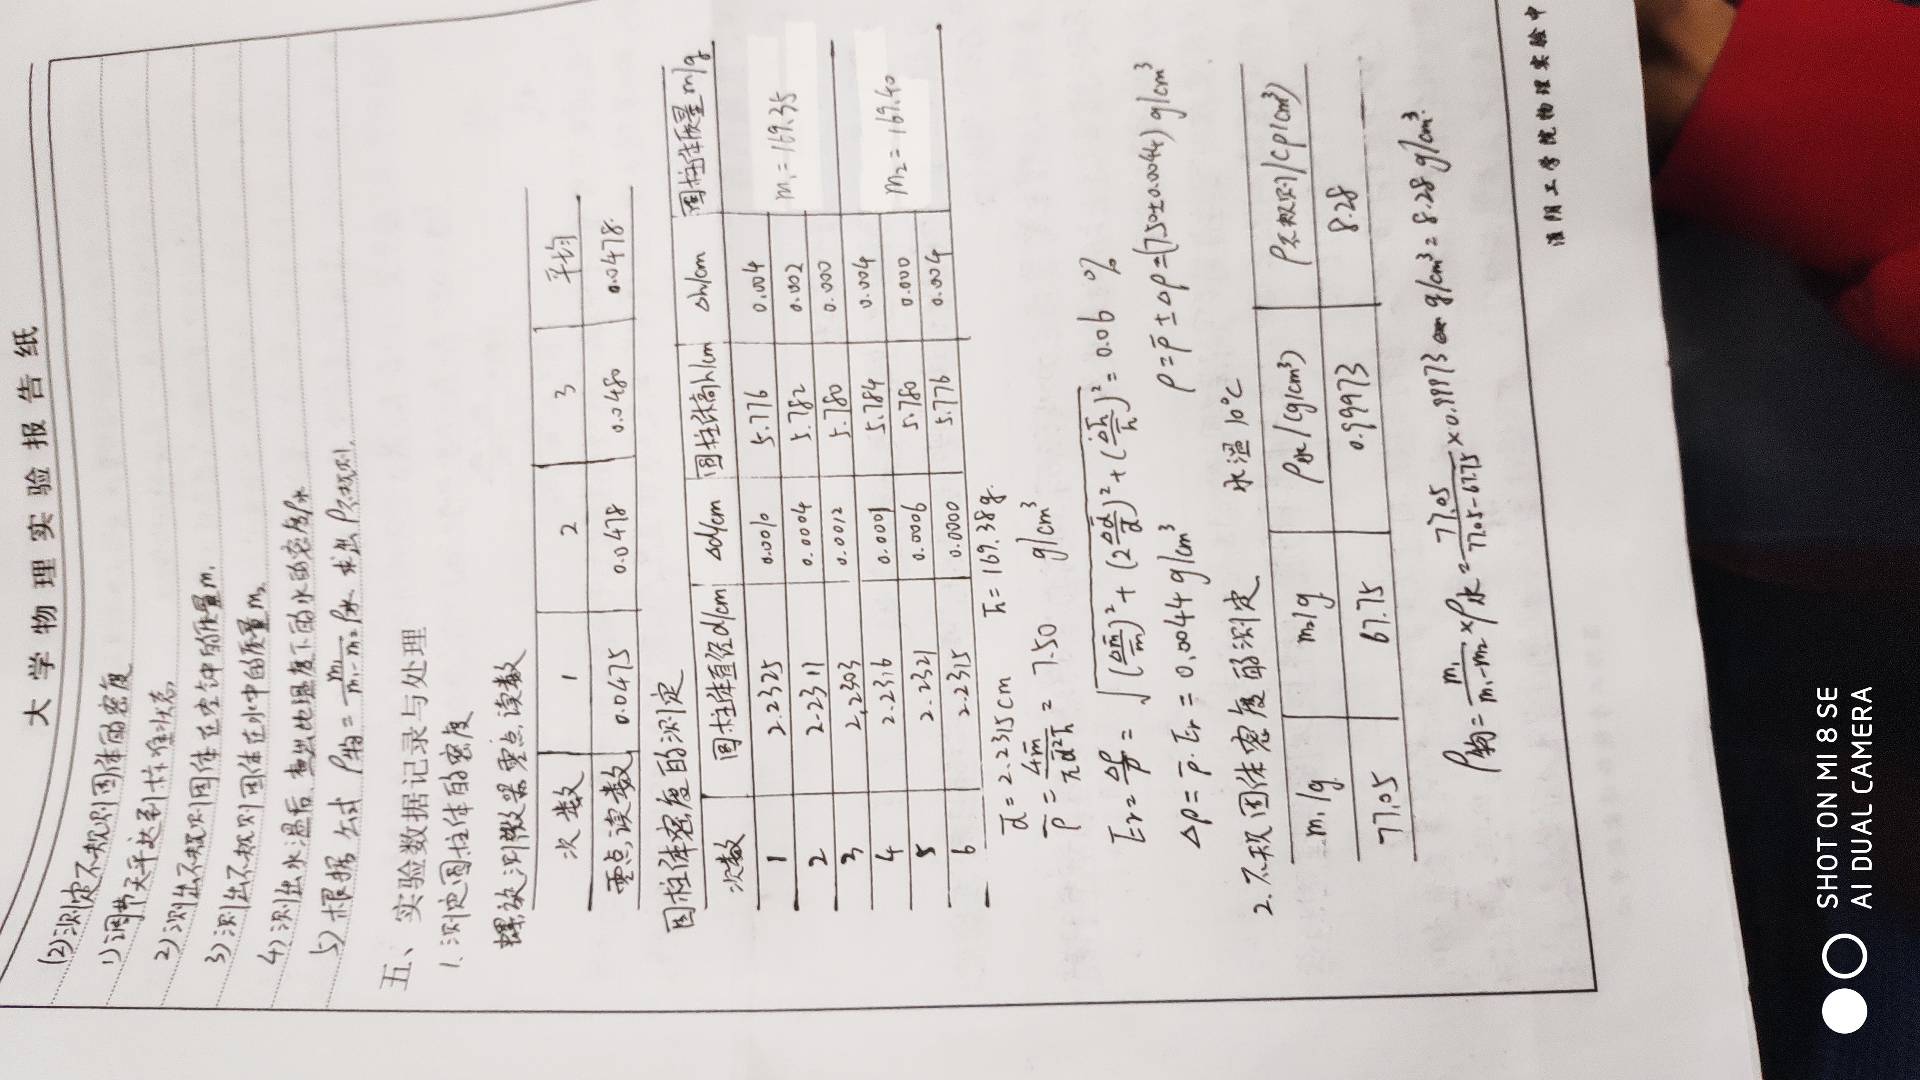 大学物理实验报告纸
(2)测定不规则固体的密度
1)调节天平达到标准状态
2)测出不规则固体在空气中的质量m₁
3)测出不规则固体在水中的质量m₂
4)测出水温后,查出此温度下的水的密度ρ水
5)根据公式 ρ物=m₁/(m₁-m₂)ρ水 求出ρ不规则.
五、实验数据记录与处理
1.测定圆柱体的密度
螺旋测微器零点读数
次数 1 2 3 平均
零点读数 0.0475 0.0478 0.0480 0.0478
圆柱体密度的测定
次数 圆柱体直径d/cm Δd/cm 圆柱体高h/cm Δh/cm 圆柱体质量m/g
1 2.2325 0.0010 5.776 0.004 m₁=169.35
2 2.2311 0.0004 5.782 0.002
3 2.2303 0.0012 5.780 0.000
4 2.2316 0.0001 5.784 0.004 m₂=169.40
5 2.2321 0.0006 5.780 0.000
6 2.2315 0.0000 5.776 0.004
d̄=2.2315cm h̄=169.38g.
ρ̄=4m̄/(πd̄²h̄)=7.50 g/cm³
Er=Δρ/ρ=√((Δm̄/m̄)²+(2Δd̄/d̄)²+(Δh̄/h̄)²)=0.06 %
Δρ=ρ̄·Er=0.0044g/cm³ ρ=ρ̄±Δρ=(7.50±0.0044)g/cm³
2.不规固体密度的测定 水温10℃
m₁/g m₂/g ρ水/(g/cm³) ρ不规则/(g/cm³)
77.05 67.75 0.99973 8.28
ρ物=m₁/(m₁-m₂)×ρ水=77.05/(77.05-67.75)×0.99973 g/cm³=8.28g/cm³.
淮阴工学院物理实验中
SHOT ON MI 8 SE
AI DUAL CAMERA